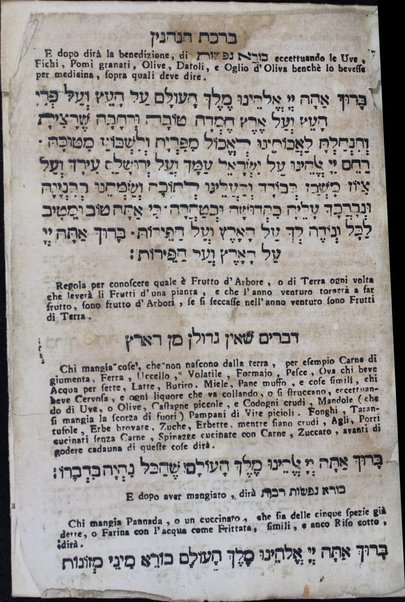 ברכת הנהנין
E dopo dirà la benedizione, di בורא נפשות eccettuando le Uve,
Fichi, Pomi granati, Olive, Datoli, e Oglio d'Oliva benchè lo bevesse
per medicina, sopra quali deve dire.
ברוך אתה יי אלהינו מלך העולם על העץ ועל פרי
העץ ועל ארץ חמדה טובה ורחבה שרצית
והנחלת לאבותינו לאכול מפריה ולשבוע מטובה.
רחם יי אלהינו על ישראל עמך ועל ירושלים עירך ועל
ציון משכן כבודך והעלינו לתוכה ושמחנו בבנינה
ונברכך עליה בקדושה ובטהרה. כי אתה טוב ומטיב
לכל ונודה לך על הארץ ועל הפירות: ברוך אתה יי
על הארץ ועל הפירות:
Regola per conoscere quale è Frutto d'Arbore, o di Terra ogni volta
che leverà li Frutti d'una pianta, e che l'anno venturo tornerà a far
frutto, sono frutto d'Arbori, se si seccasse nell'anno venturo sono Frutti
di Terra.
דברים שאין גדולן מן הארץ
Chi mangia cose, che non nascono dalla terra, per esempio Carne di
giumenta, Ferra, Uccello, Volatile, Formajo, Pesce, Ova chi beve
Acqua per sette, Latte, Butiro, Miele, Pane muffo, e cose simili, chi
beve Cervosa, e ogni liquore che va collando, o si struccano, eccettuan-
do di Uve, o Olive, Castagne picciole, e Codogni crudi, Mandole (che
si mangia la scorza di fuori) Pampani di Vite picioli. Fonghi, Taran-
tufole, Erbe brovate, Zuche, Erbette, mentre siano crudi, Agli, Porri
cucinati senza Carne, Spinazze cucinate con Carne, Zuccaro, avanti di
godere cadauna di queste cose dirà.
ברוך אתה יי אלהינו מלך העולם שהכל נהיה בדברו:
E dopo aver mangiato, dirà בורא נפשות רבות
Chi mangia Pannada, o un cuccinato, che sia delle cinque spezie già
dette, o Farina con l'acqua come Frittata, simili, e anco Riso cotto,
dirà.
ברוך אתה יי אלהינו מלך העולם בורא מיני מזונות